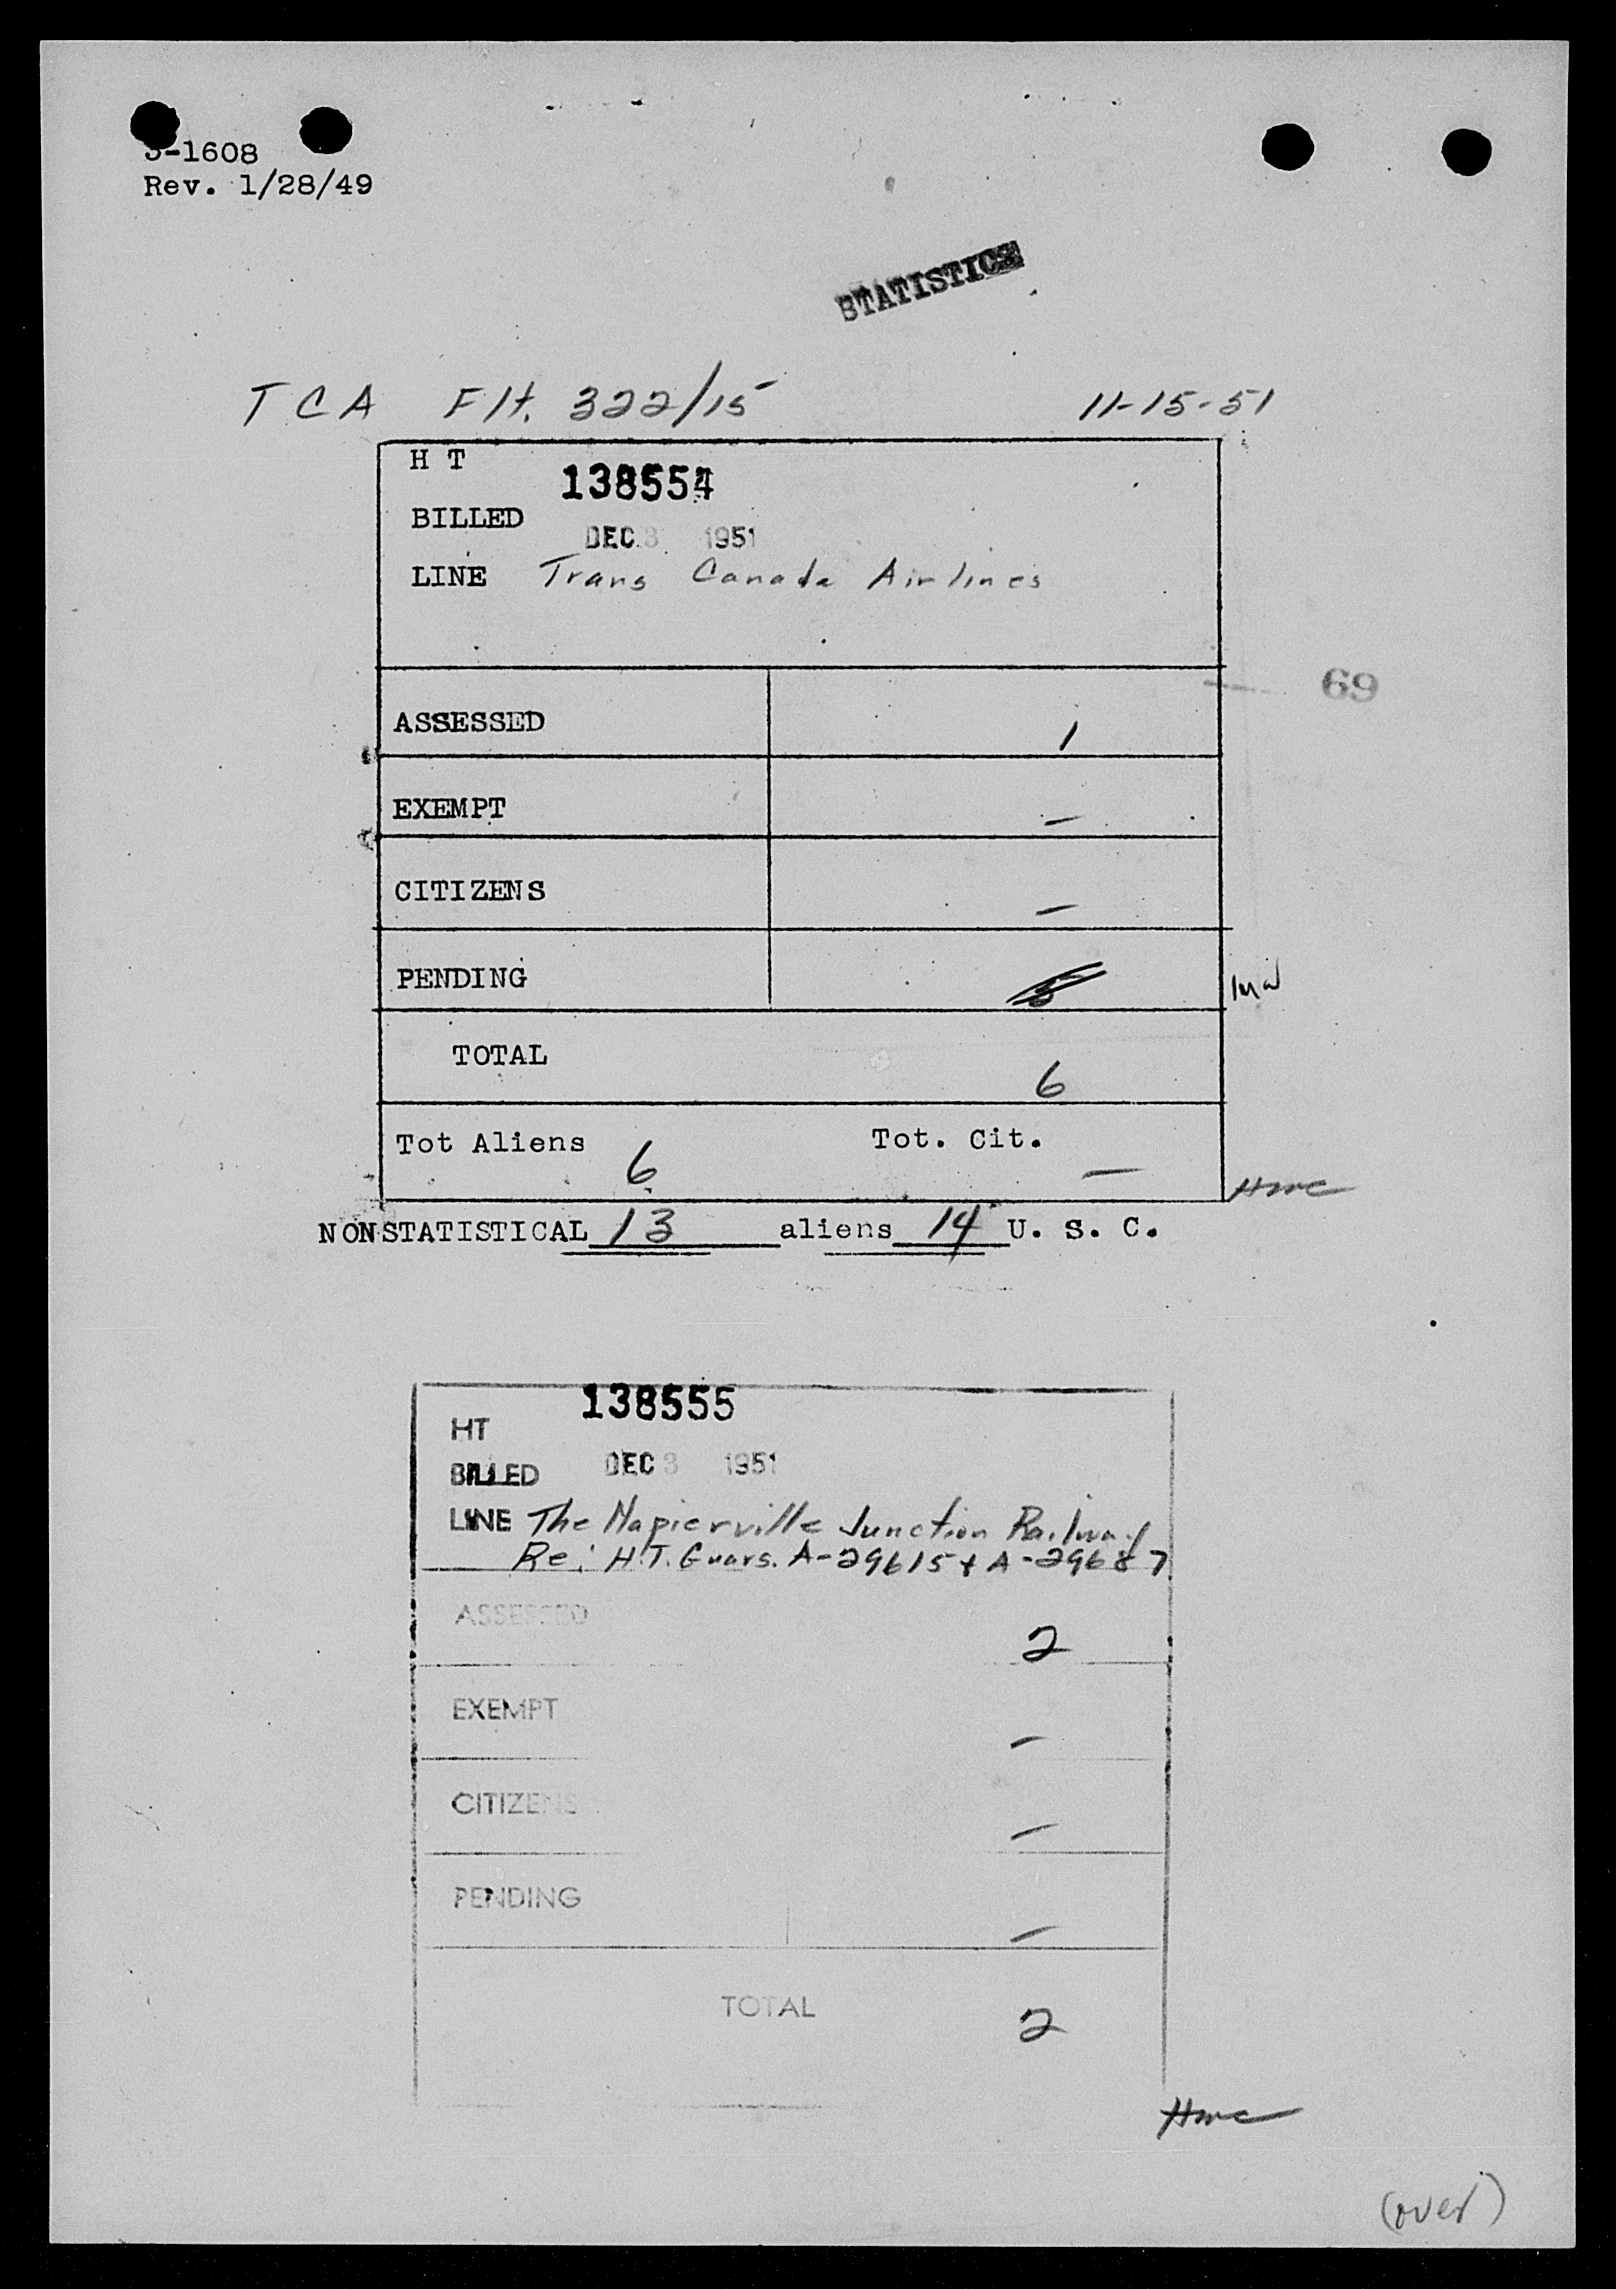 -1608
Rev. 1/28/49
STATISTICS
TCA Flt. 322/15 11-15-51
H T 138554
BILLED DEC 3 1951
LINE Trans Canada Airlines
69
ASSESSED 1
EXEMPT –
CITIZENS –
PENDING 5
TOTAL 6
Tot Aliens 6 Tot. Cit. –
Hmc
NONSTATISTICAL 13 aliens 14 U. S. C.
138555
HT
BILLED DEC 3 1951
LINE The Napierville Junction Railway
Re: H.T. Guars. A-29615 + A-29687
ASSESSED 2
EXEMPT –
CITIZENS –
PENDING –
TOTAL 2
Hmc
(over)